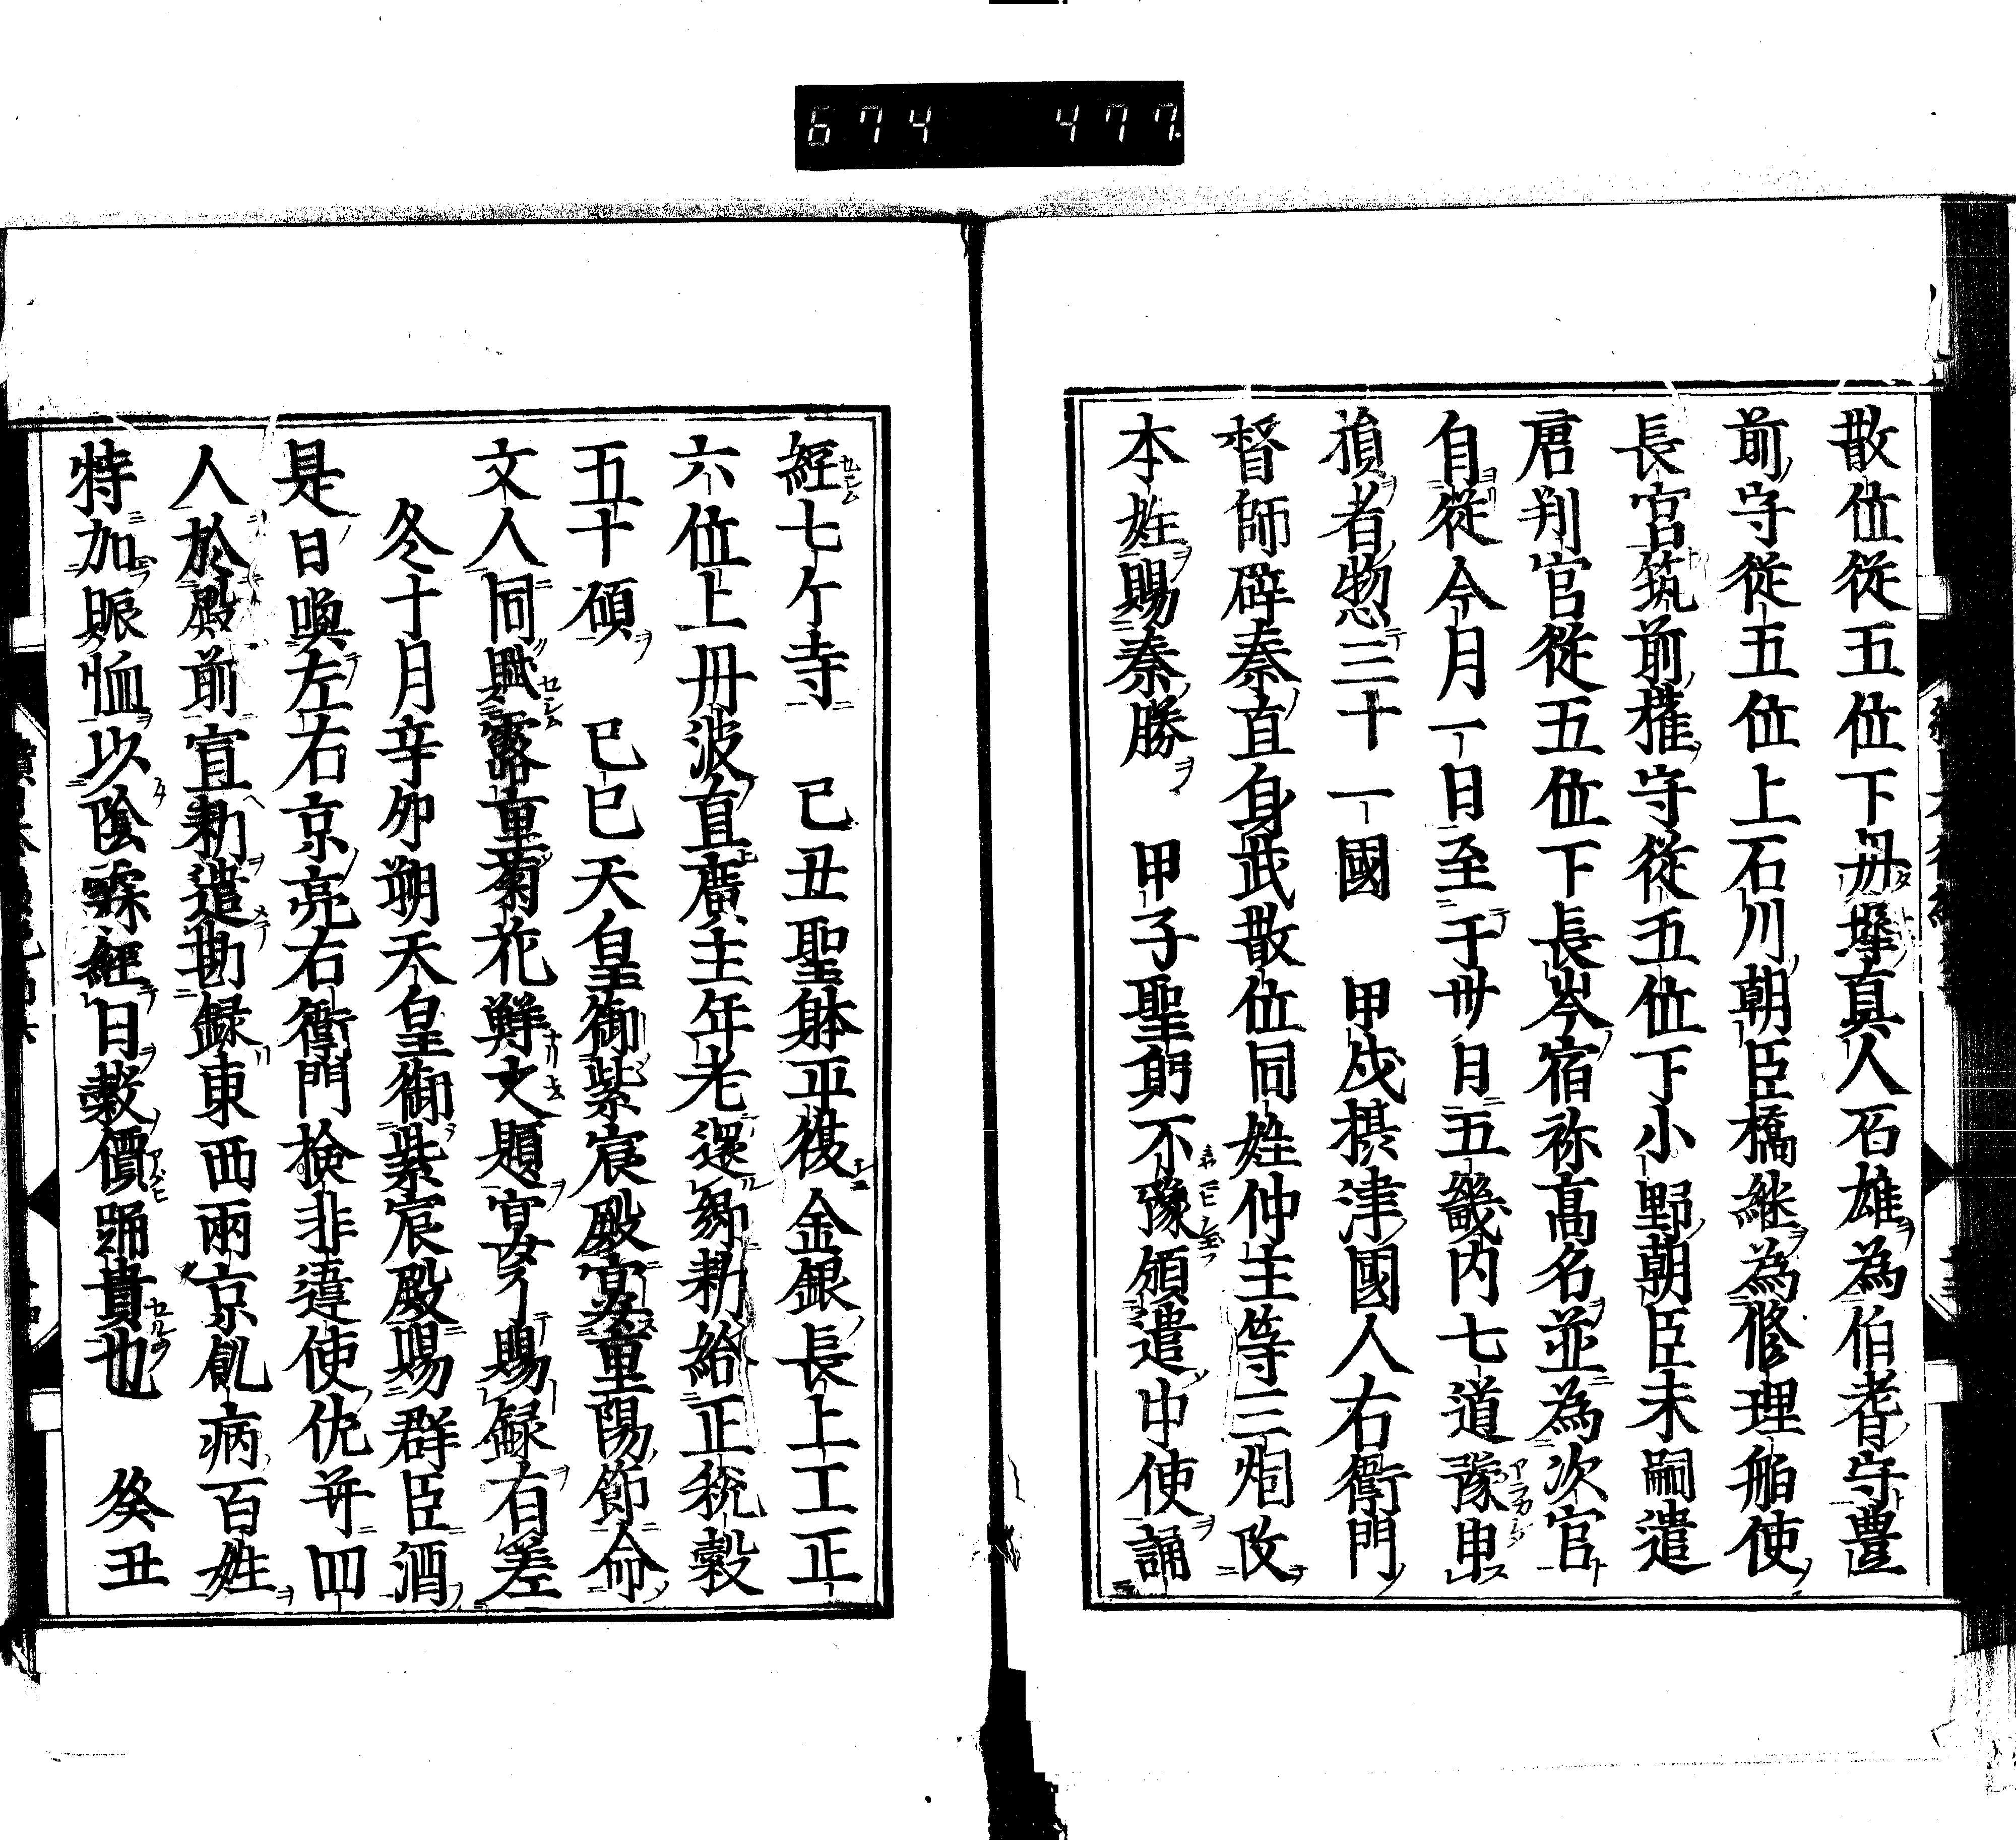 674 477
散位從五位下丹墀真人石雄為伯耆守豊
前守從五位上石川朝臣橋継為修理舶使
長官筑前權守從五位下小野朝臣末嗣遣
唐判官從五位下長岑宿祢髙名並為次官
自從今月一日至于卅日五畿内七道豫申
損者惣三十一國 甲戌摂津國人右衞門
督師碎秦直身武散位同姓仲主等三烟改
本姓賜秦勝 甲子聖躬不豫頒遣中使誦
經七ケ寺 己丑聖躰平復金銀長上工正
六位上丹波直廣主年老還郷勅給正税穀
五十碩 己巳天皇御紫宸殿宴重陽節命
文人同賦露重菊花鮮之題宴了賜録有差
冬十月辛卯朔天皇御紫宸殿賜群臣酒
是日喚左右京亮右衞門検非違使佐并四
人於殿前宣勅遣勘録東西兩京飢病百姓
特加賑恤以陰霖經日穀價踊貴也 癸丑